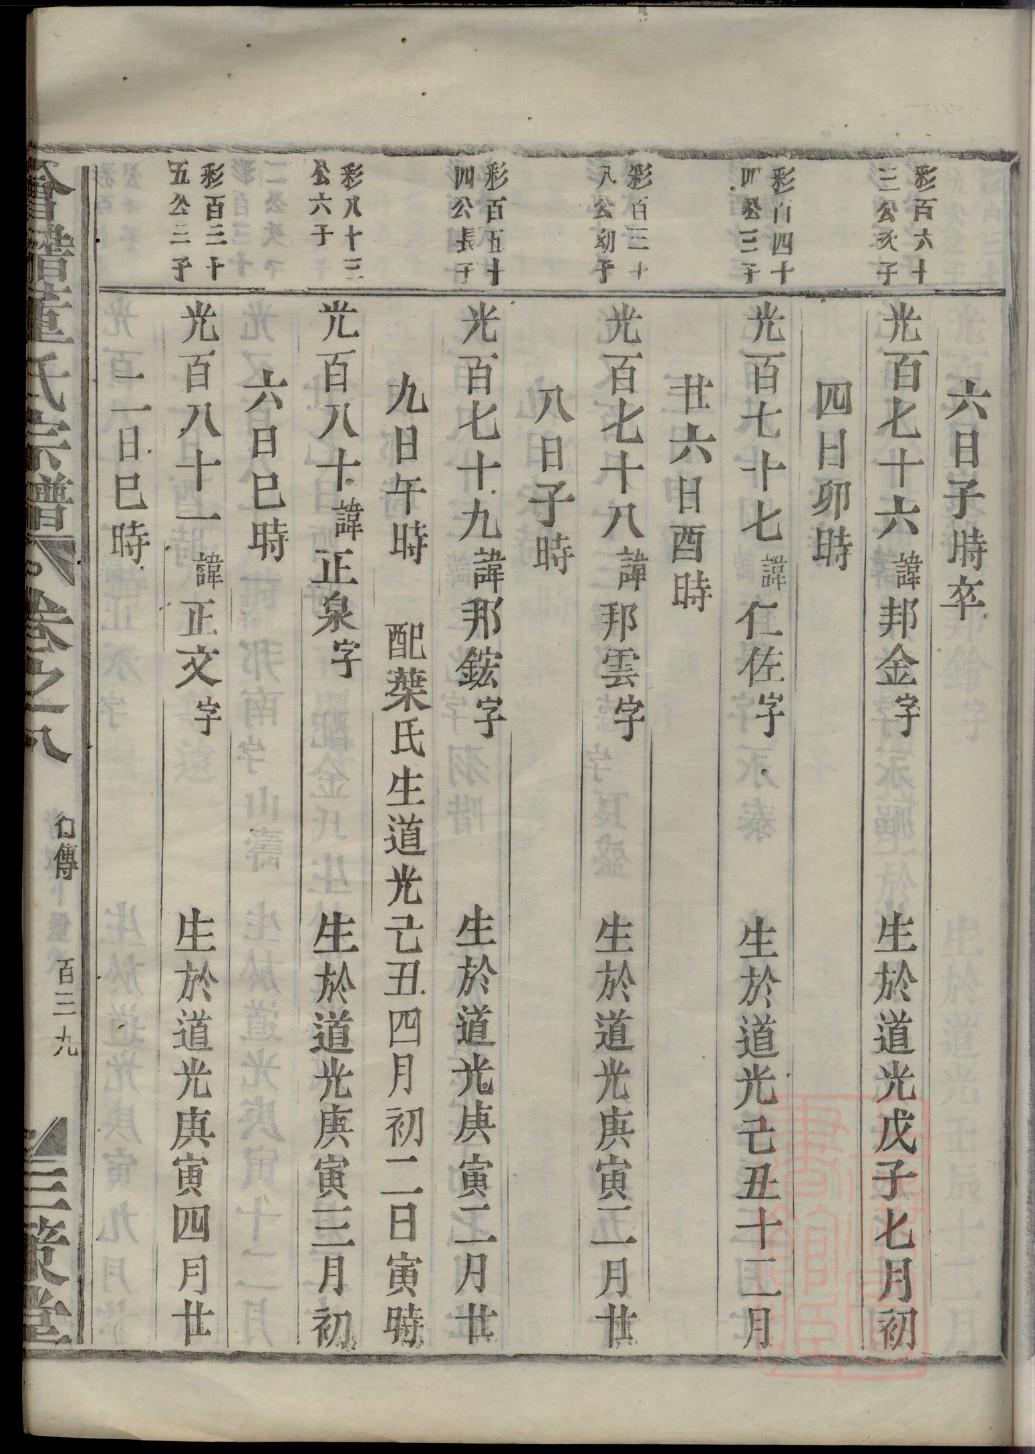 六日子時卒
彩百六十
三公次子
光百七十六諱邦金字 生於道光戊子七月初
四日卯時
彩百四十
四公三子
光百七十七諱仁佐字 生於道光己丑十二月
廿六日酉時
彩百三十
八公幼子
光百七十八諱邦雲字 生於道光庚寅二月廿
八日子時
彩百五十
四公長子
光百七十九諱邦鋐字 生於道光庚寅二月廿
九日午時 配葉氏生道光己丑四月初二日寅時
彩八十三
公六子
光百八十諱正泉字 生於道光庚寅三月初
六日巳時
彩百二十
五公二子
光百八十一諱正文字 生於道光庚寅四月廿
二日巳時
董氏宗譜 卷之八 行傳 百三九 三策堂